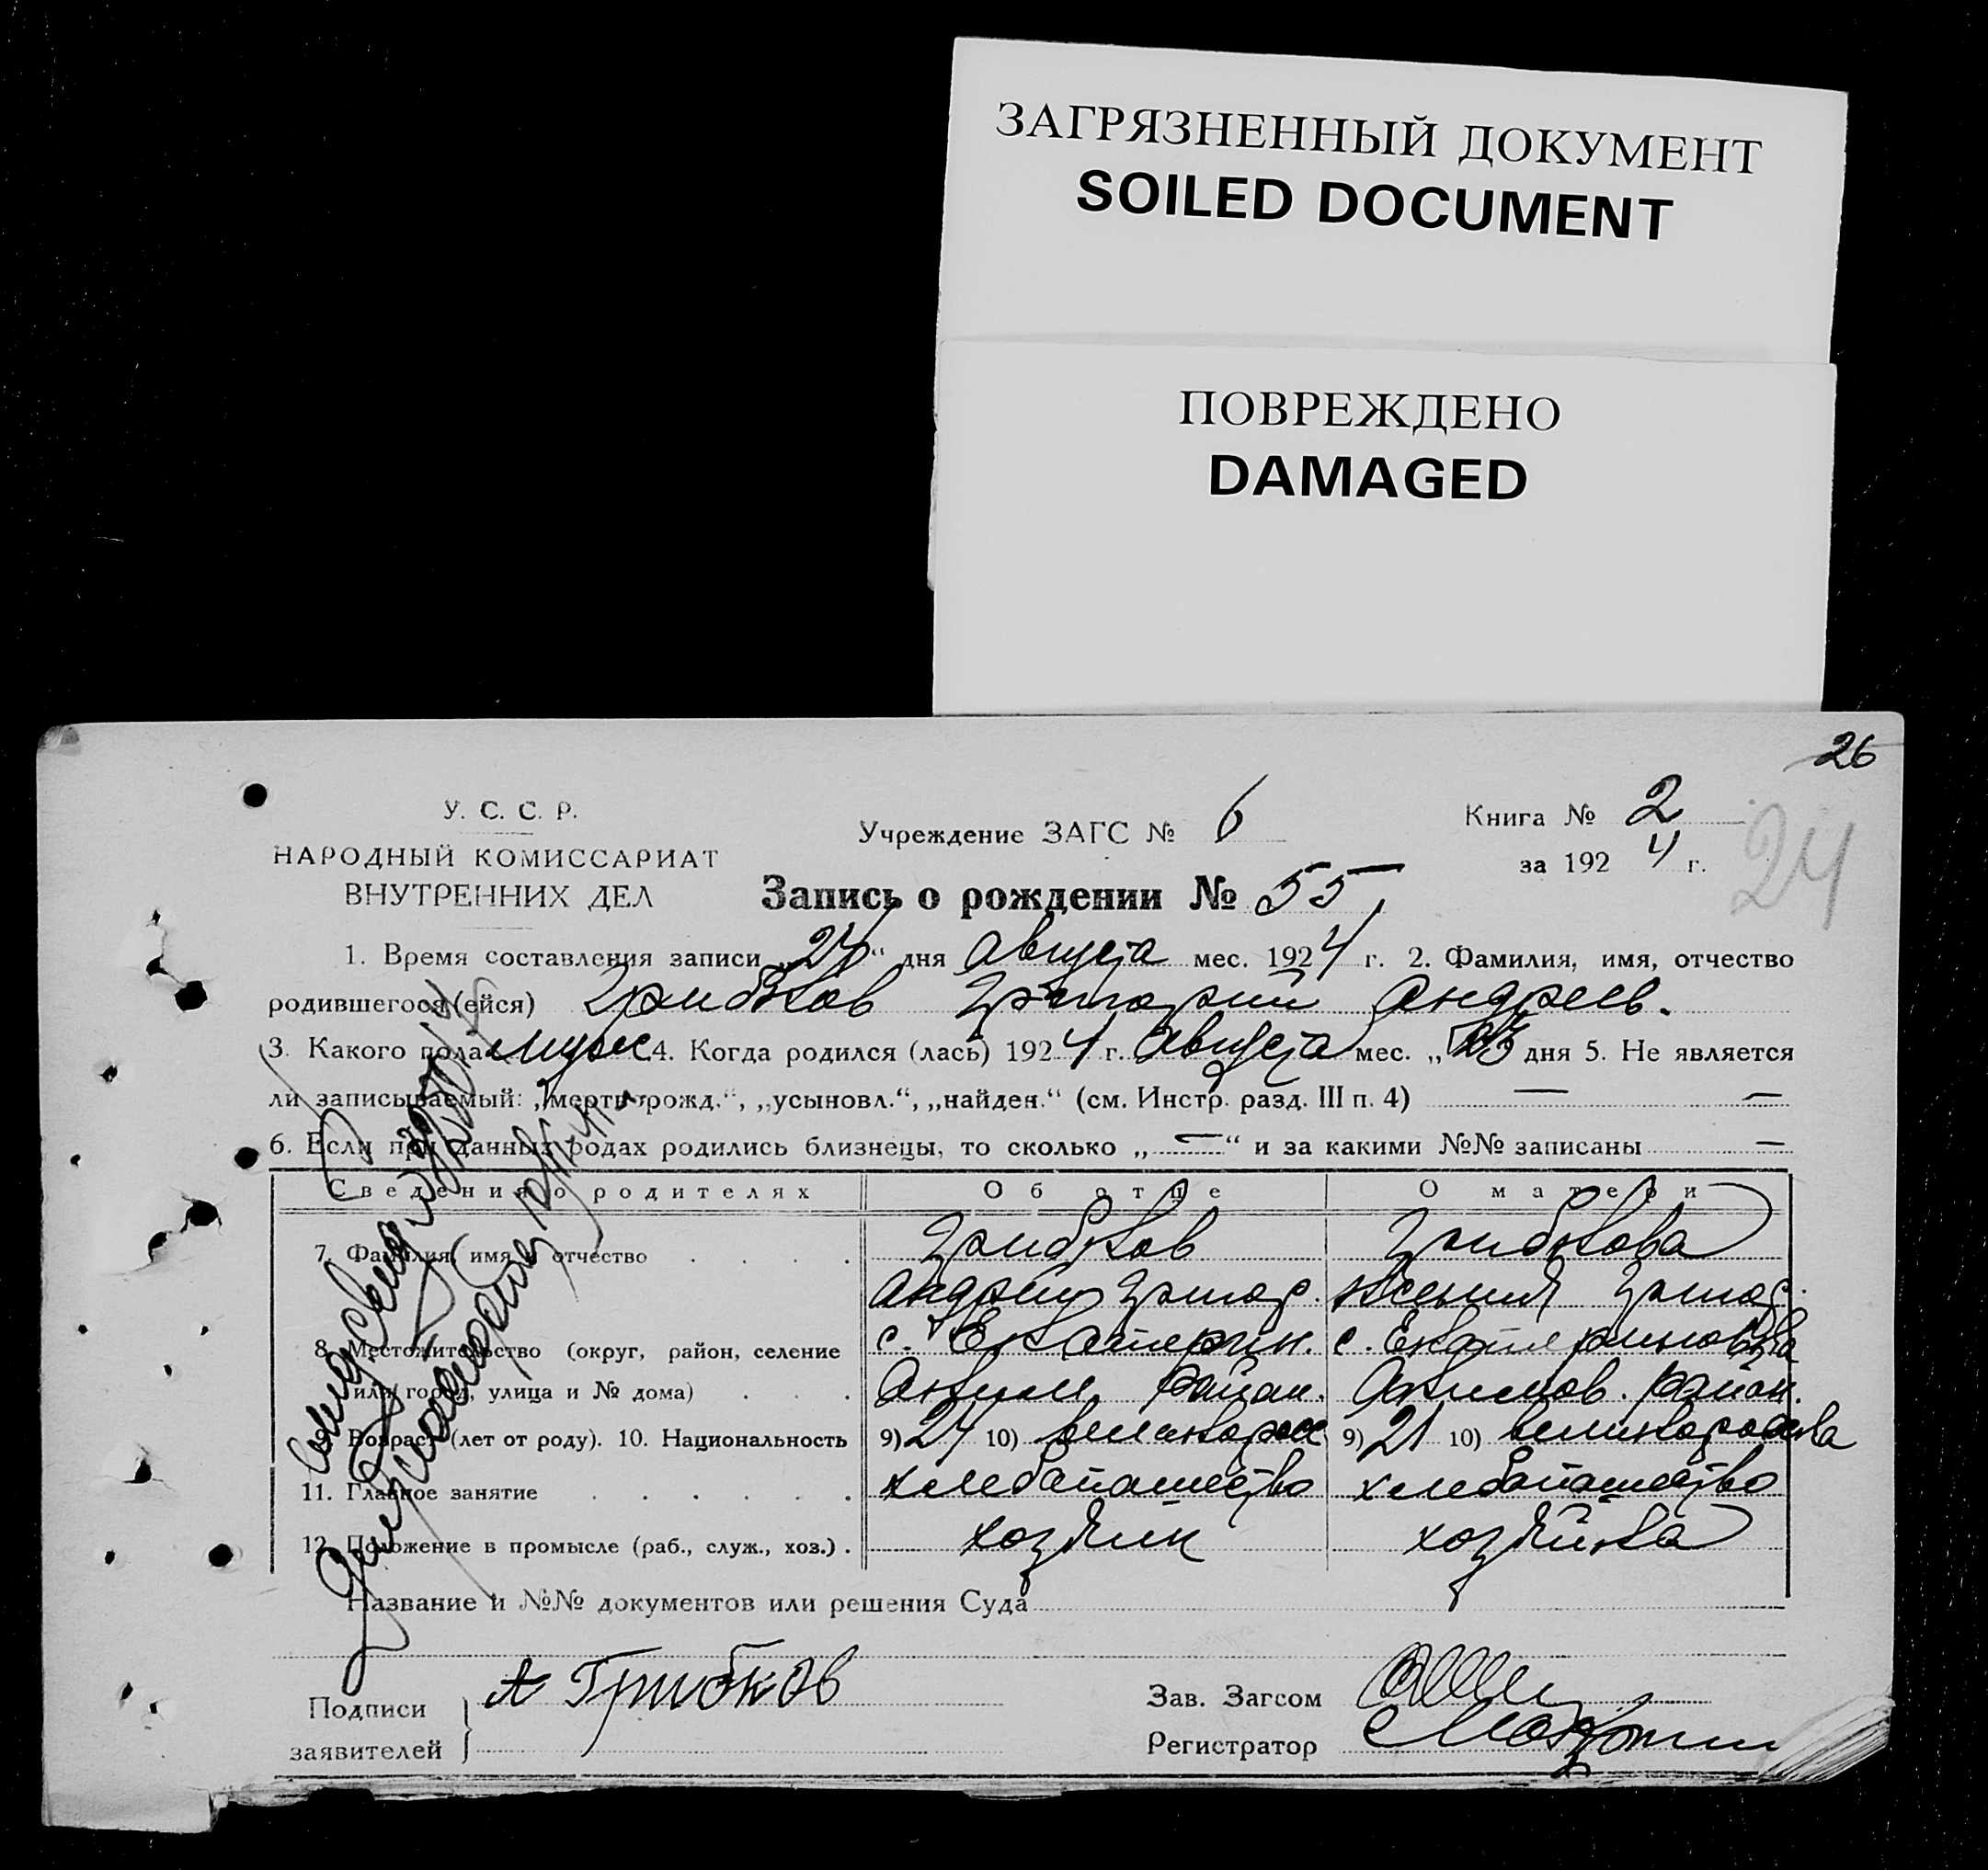 ЗАГРЯЗНЕННЫЙ ДОКУМЕНТ
SOILED DOCUMENT
ПОВРЕЖДЕНО
DAMAGED
26
У. С. С. Р.
НАРОДНЫЙ КОМИССАРИАТ
ВНУТРЕННИХ ДЕЛ
Учреждение ЗАГС № 6
Книга № 2
за 1924 г.
24
Запись о рождении № 55
1. Время составления записи „24“ дня Августа мес. 1924 г. 2. Фамилия, имя, отчество
родившегося (ейся) Грибков Григорий Андреев.
3. Какого пола муж 4. Когда родился (лась) 1924 г. Августа мес. „ дня 5. Не является
ли записываемый: „мертворожд.“, „усыновл.“, „найден.“ (см. Инстр. разд. III п. 4) — —
6. Если при данных родах родились близнецы, то сколько „—“ и за какими №№ записаны —
Сведения о родителях Об отце О матери
7. Фамилия, имя и отчество . . . . Грибков Грибкова
Андрей Григор. Ксения Григор.
8. Местожительство (округ, район, селение с. Екатерин. с. Екатериновка
или город, улица и № дома) . . . Аким. район. Акимов. район.
9. Возраст (лет от роду). 10. Национальность 9) 24 10) великоросс 9) 21 10) великоросска
11. Главное занятие . . . . . . хлебопашество хлебопашество
12. Положение в промысле (раб., служ., хоз.) . хозяин хозяйка
Название и №№ документов или решения Суда
Подписи
заявителей
А Грибков
Зав. Загсом
Регистратор